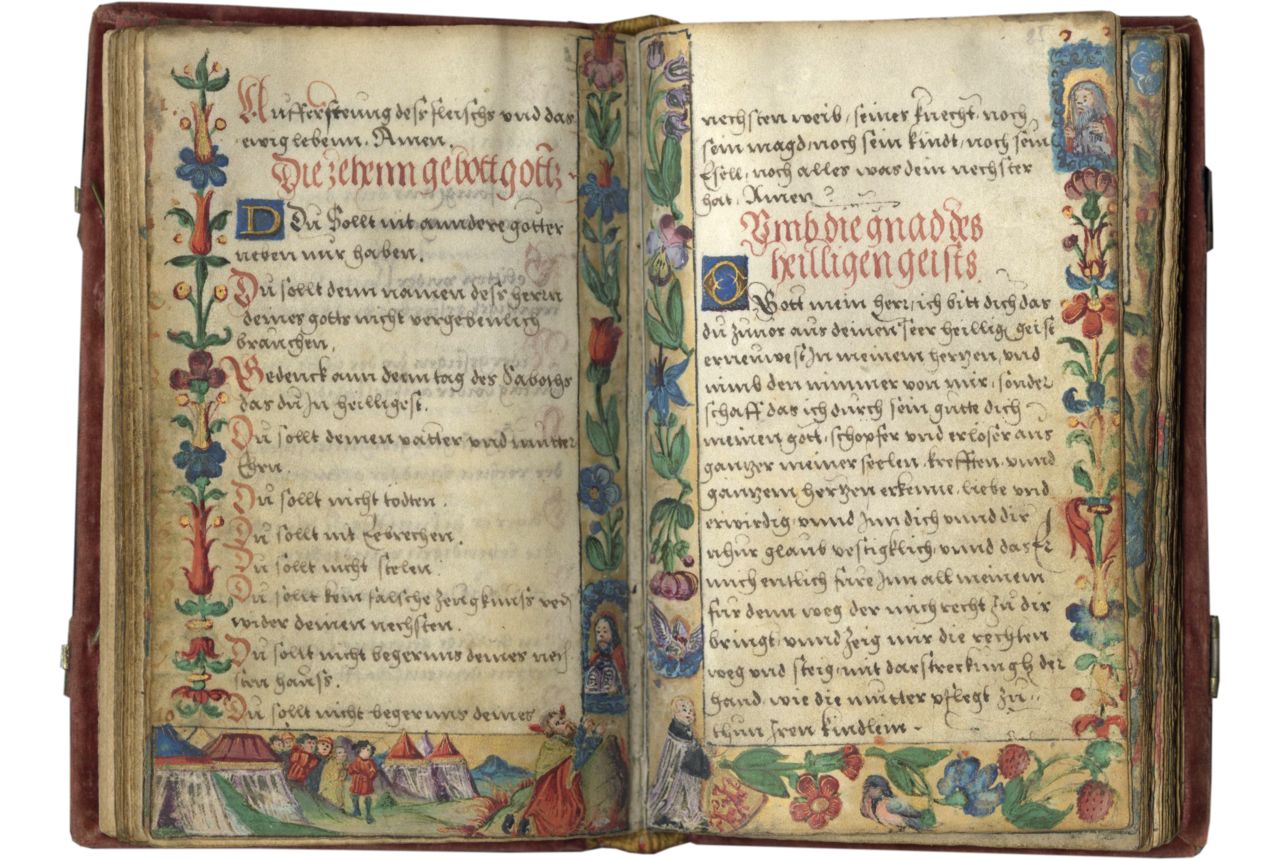 Auffersteung dess fleischs vnd das
ewig lebenn. Amen.
Die zehenn gebott gotts
Du Sollt nit anndere götter
neben mir haben.
Du sollt denn namen dess herrn
deines gotts nicht vergebenlich
brauchen.
Bedenck ann denn tag des Saboths
das du Jn heilligest.
Du sollt deinen vatter vnd mutter
Ehrn.
Du sollt nicht todten.
Du sollt nit Eebrechen.
Du sollt nicht stelen.
Du sollt kein falsche Zeugknuss reden
wider deinen nechsten.
Du sollt nicht begernns deines nech
sten hauss.
Du sollt nicht begernns deines
nechsten weib, seines knecht noch
sein magd, noch sein kindt, noch sein
Esell, noch alles was dein nechster
hat. Amen.
Vmb die gnad des
heilligen geists
O Gott mein herr, ich bitt dich das
du zuuor aus deinen seer heillig geist
erneuwest Jn meinem hertzen, vnd
nimb den nimmer von mir, sonder
schaff das ich durch sein gutte dich
meinen gott, schopfer vnd erlöser aus
gantzer meiner seelen, krefften vnnd
gantzem hertzen erkenne, liebe vnd
erwirdig, vnnd Jnn dich vnnd dir
nhur glaub vestigklich, vnnd das Er
mich entlich füre Jnn all meinem
für denn weg der mich recht zu dir
bringt, vnnd Zeig mir die rechten
weg vnd steig, mit darstreckung der
hand, wie die mutter pflegt zu
thun Jren kindlein.